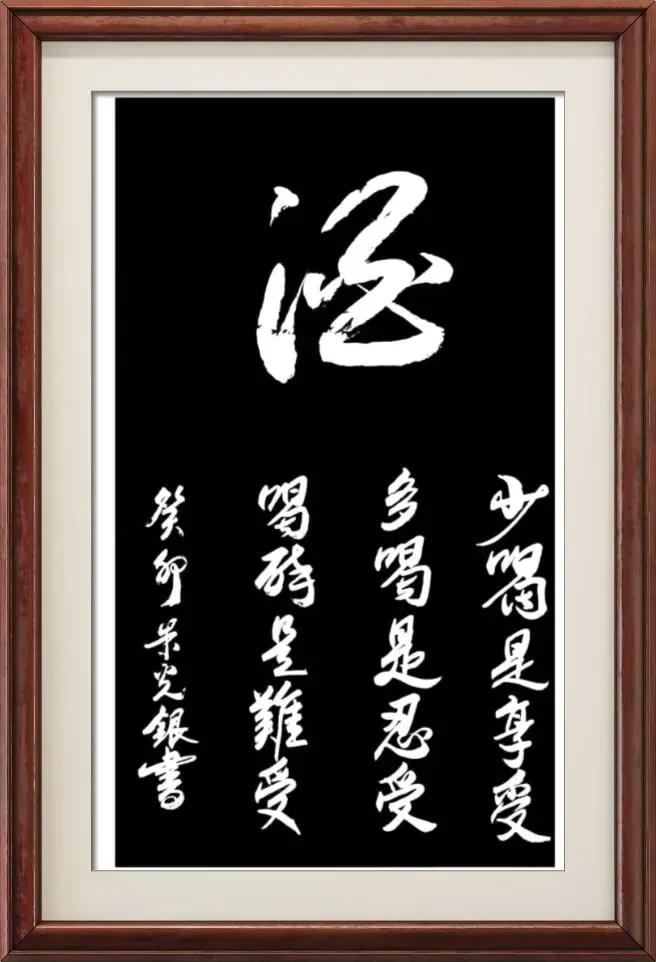 酒
少喝是享受
多喝是忍受
喝醉是難受
癸卯吴光銀書